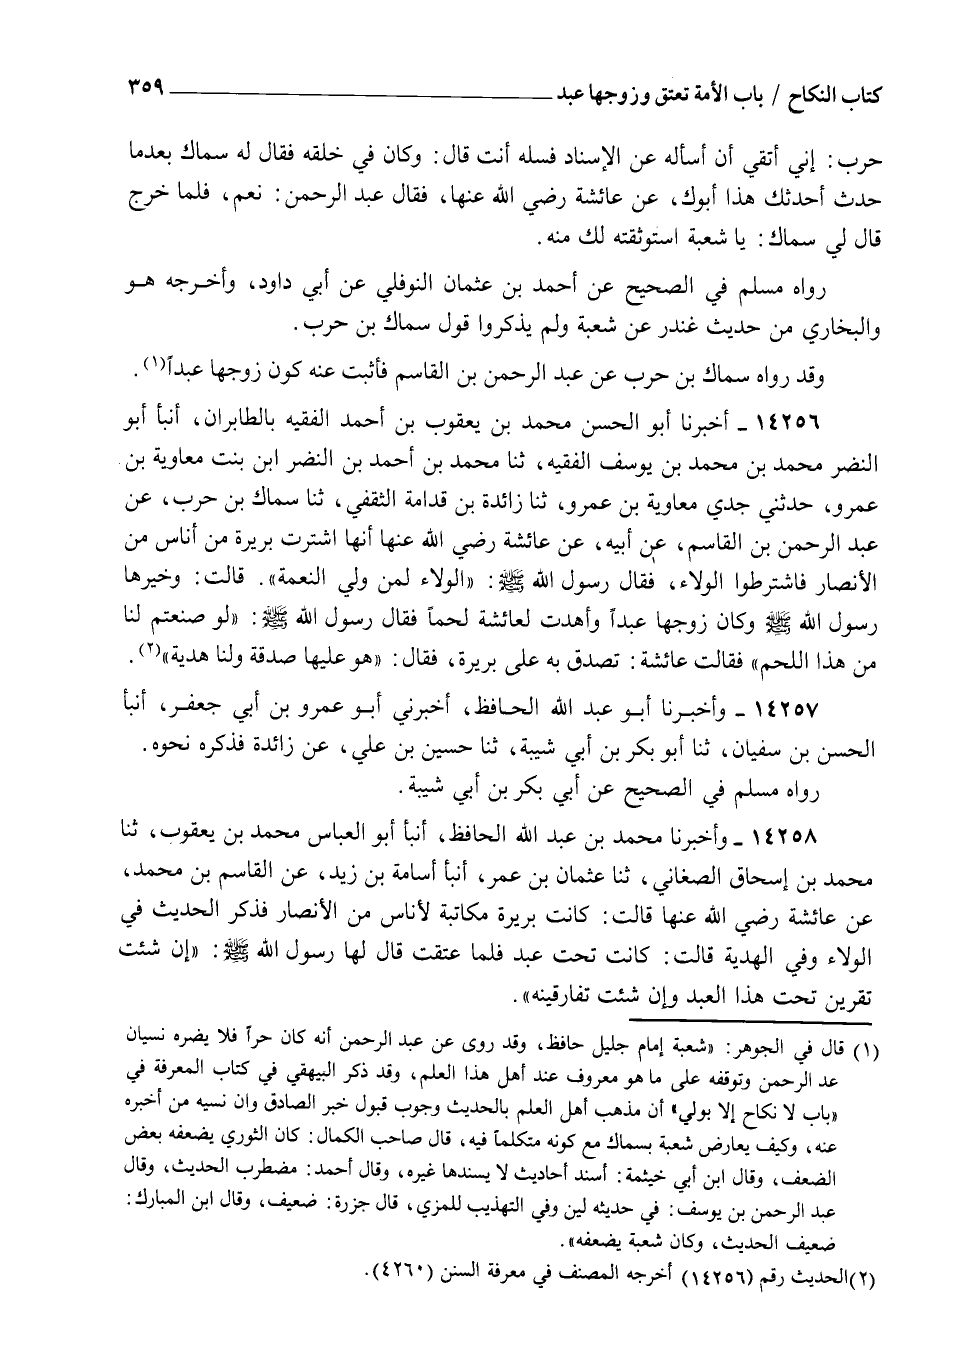 كتاب النكاح / باب الأمة تعتق وزوجها عبد ٣٥٩
حرب: إني أتقي أن أسأله عن الإسناد فسله أنت قال: وكان في خلقه فقال له سماك بعدما
حدث أحدثك هذا أبوك، عن عائشة رضي الله عنها، فقال عبد الرحمن: نعم، فلما خرج
قال لي سماك: يا شعبة استوثقته لك منه.
رواه مسلم في الصحيح عن أحمد بن عثمان النوفلي عن أبي داود، وأخرجه هو
والبخاري من حديث غندر عن شعبة ولم يذكروا قول سماك بن حرب.
وقد رواه سماك بن حرب عن عبد الرحمن بن القاسم فأثبت عنه كون زوجها عبداً(١).
١٤٢٥٦ ـ أخبرنا أبو الحسن محمد بن يعقوب بن أحمد الفقيه بالطابران، أنبأ أبو
النضر محمد بن محمد بن يوسف الفقيه، ثنا محمد بن أحمد بن النضر ابن بنت معاوية بن
عمرو، حدثني جدي معاوية بن عمرو، ثنا زائدة بن قدامة الثقفي، ثنا سماك بن حرب، عن
عبد الرحمن بن القاسم، عن أبيه، عن عائشة رضي الله عنها أنها اشترت بريرة من أناس من
الأنصار فاشترطوا الولاء، فقال رسول الله ﷺ: «الولاء لمن ولي النعمة». قالت: وخيرها
رسول الله ﷺ وكان زوجها عبداً وأهدت لعائشة لحماً فقال رسول الله ﷺ: «لو صنعتم لنا
من هذا اللحم» فقالت عائشة: تصدق به على بريرة، فقال: «هو عليها صدقة ولنا هدية»(٢).
١٤٢٥٧ ـ وأخبرنا أبو عبد الله الحافظ، أخبرني أبو عمرو بن أبي جعفر، أنبأ
الحسن بن سفيان، ثنا أبو بكر بن أبي شيبة، ثنا حسين بن علي، عن زائدة فذكره نحوه.
رواه مسلم في الصحيح عن أبي بكر بن أبي شيبة.
١٤٢٥٨ ـ وأخبرنا محمد بن عبد الله الحافظ، أنبأ أبو العباس محمد بن يعقوب، ثنا
محمد بن إسحاق الصغاني، ثنا عثمان بن عمر، أنبأ أسامة بن زيد، عن القاسم بن محمد،
عن عائشة رضي الله عنها قالت: كانت بريرة مكاتبة لأناس من الأنصار فذكر الحديث في
الولاء وفي الهدية قالت: كانت تحت عبد فلما عتقت قال لها رسول الله ﷺ: «إن شئت
تقرين تحت هذا العبد وإن شئت تفارقينه».
(١) قال في الجوهر: «شعبة إمام جليل حافظ، وقد روى عن عبد الرحمن أنه كان حراً فلا يضره نسيان
عد الرحمن وتوقفه على ما هو معروف عند أهل هذا العلم، وقد ذكر البيهقي في كتاب المعرفة في
«باب لا نكاح إلا بولي» أن مذهب أهل العلم بالحديث وجوب قبول خبر الصادق وان نسيه من أخبره
عنه، وكيف يعارض شعبة بسماك مع كونه متكلماً فيه، قال صاحب الكمال: كان الثوري يضعفه بعض
الضعف، وقال ابن أبي خيثمة: أسند أحاديث لا يسندها غيره، وقال أحمد: مضطرب الحديث، وقال
عبد الرحمن بن يوسف: في حديثه لين وفي التهذيب للمزي، قال جزرة: ضعيف، وقال ابن المبارك:
ضعيف الحديث، وكان شعبة يضعفه».
(٢) الحديث رقم (١٤٢٥٦) أخرجه المصنف في معرفة السنن (٤٢٦٠).